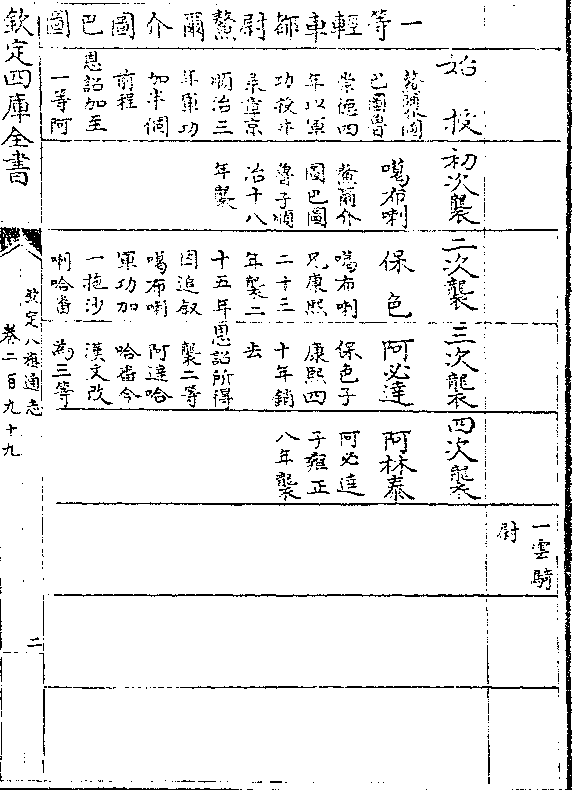 一等輕車都尉鰲爾介圖巴圖
始授
巴圖魯
崇德四
年以軍
功授牛
彔章京
順治三
年軍功
加半個
前程
恩詔加至
一等阿
初次襲
噶布喇
鰲爾介
圖巴圖
魯子順
治十八
年襲
二次襲
保色
噶布喇
兄康熙
二十三
年襲二
十五年
因追叙
噶布喇
軍功加
一拖沙
喇哈番
三次襲
阿必達
保色子
康熙四
十年銷
去
恩詔所得
襲二等
阿達哈
哈番今
漢文改
為三等
四次襲
阿林泰
阿必達
子雍正
八年襲
一雲騎
尉
欽定四庫全書
欽定八旗通志
卷二百九十九
二